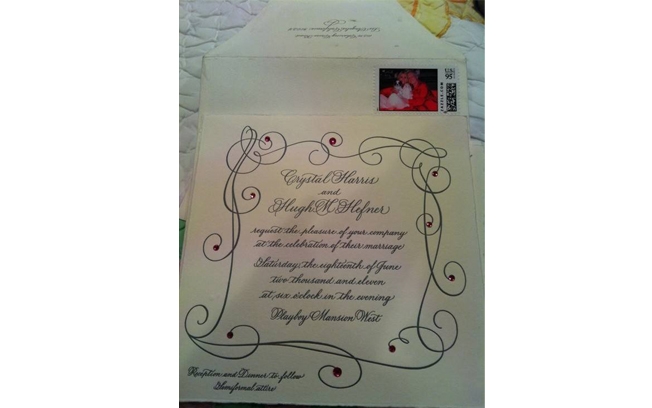 Crystal Harris
and
Hugh M. Hefner
request the pleasure of your company
at the celebration of their marriage
Saturday, the eighteenth of June
two thousand and eleven
at six o'clock in the evening
Playboy Mansion West
Reception and Dinner to follow
Semiformal attire